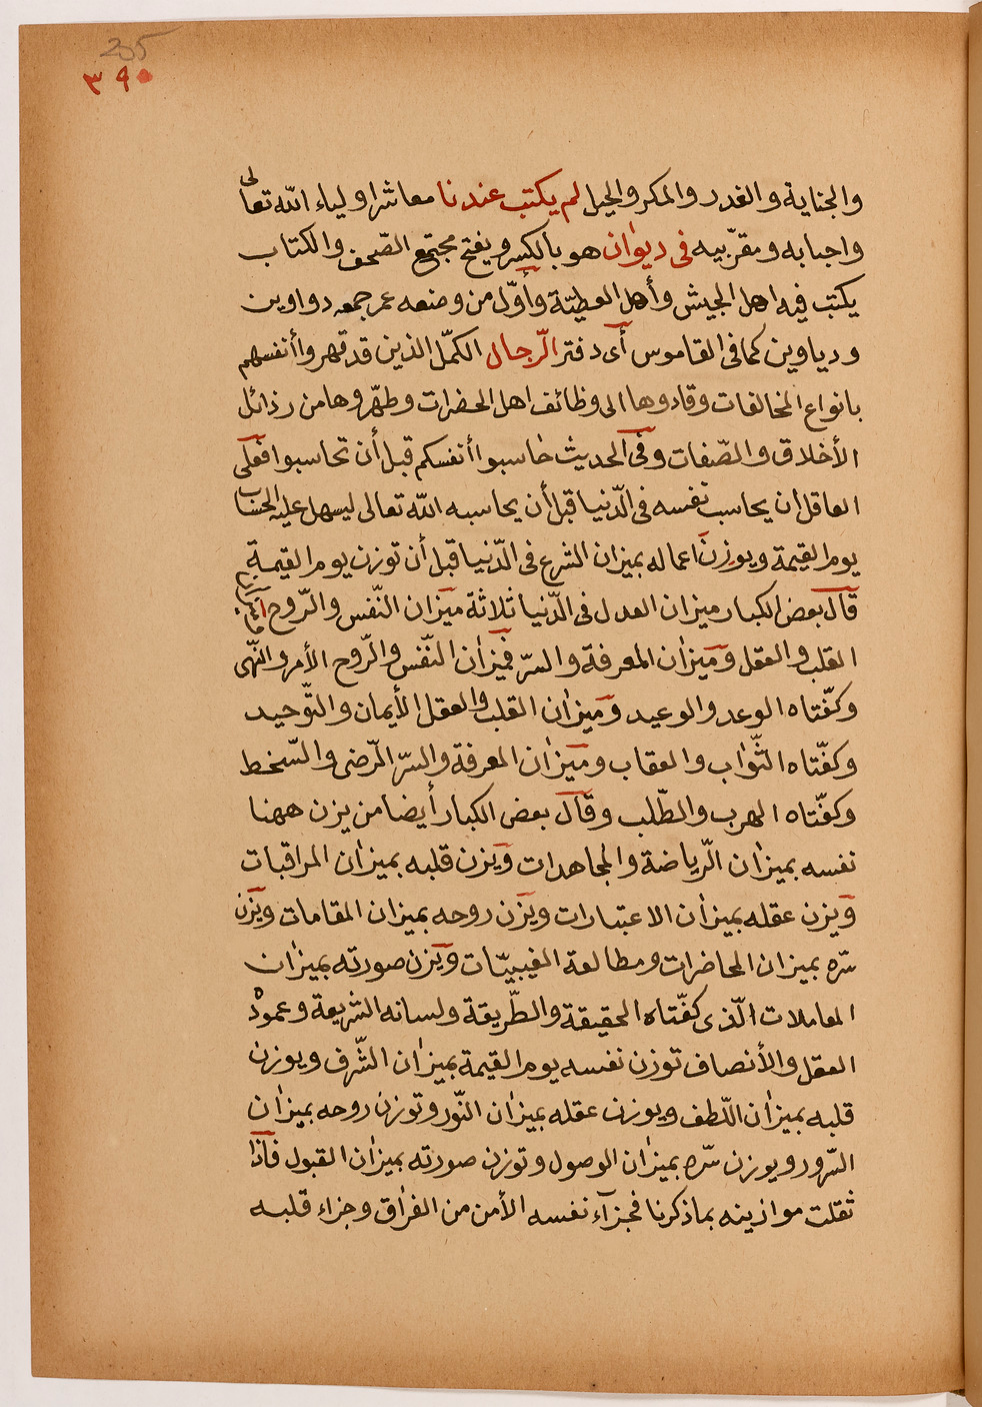 205
٣٩٠
والجناية والغدر والمكر والحيل لم يكتب عندنا معاشر اولياء الله تعالى
واحبابه ومقرّبيه فى ديوان هو بالكسر ويفتح مجتمع الصّحف والكتاب
يكتب فيه اهل الجيش وأهل العطيّة وأوّل من وضعه عمر جمعه دواوين
ودياوين كما فى القاموس أى دفتر الرّجال الكمّل الذين قد قهروا أنفسهم
بانواع المخالفات وقادوها الى وظائف اهل الحضرات وطهّروها من رذائل
الأخلاق والصّفات وفى الحديث حاسبوا أنفسكم قبل أن تحاسبوا فعلى
العاقل ان يحاسب نفسه فى الدّنيا قبل أن يحاسبه الله تعالى ليسهل عليه الحساب
يوم القيمة ويوزن اعماله بميزان الشرع فى الدّنيا قبل أن توزن يوم القيمة
قال بعض الكبار ميزان العدل فى الدّنيا ثلاثة ميزان النّفس والرّوح
القلب والعقل وميزان المعرفة والسرّ فميزان النّفس والرّوح الأمر والنّهى
وكفّتاه الوعد والوعيد وميزان القلب والعقل الأيمان والتّوحيد
وكفّتاه الثّواب والعقاب وميزان المعرفة والسرّ الرّضى والسّخط
وكفّتاه الهرب والطّلب وقال بعض الكبار أيضا من يزن ههنا
نفسه بميزان الرّياضة والمجاهدات ويزن قلبه بميزان المراقبات
ويزن عقله بميزان الاعتبارات ويزن روحه بميزان المقامات ويزن
سّره بميزان المحاضرات ومطالعة الغيبيّات ويزن صورته بميزان
المعاملات الّذى كفّتاه الحقيقة والطّريقة ولسانه الشريعة وعموده
العقل والأنصاف توزن نفسه يوم القيمة بميزان الشّرف ويوزن
قلبه بميزان اللّطف ويوزن عقله بميزان النّور وتوزن روحه بميزان
السّرور ويوزن سّره بميزان الوصول وتوزن صورته بميزان القبول فاذا
ثقلت موازينه بما ذكرنا فجزآء نفسه الأمن من الفراق وجزاء قلبه